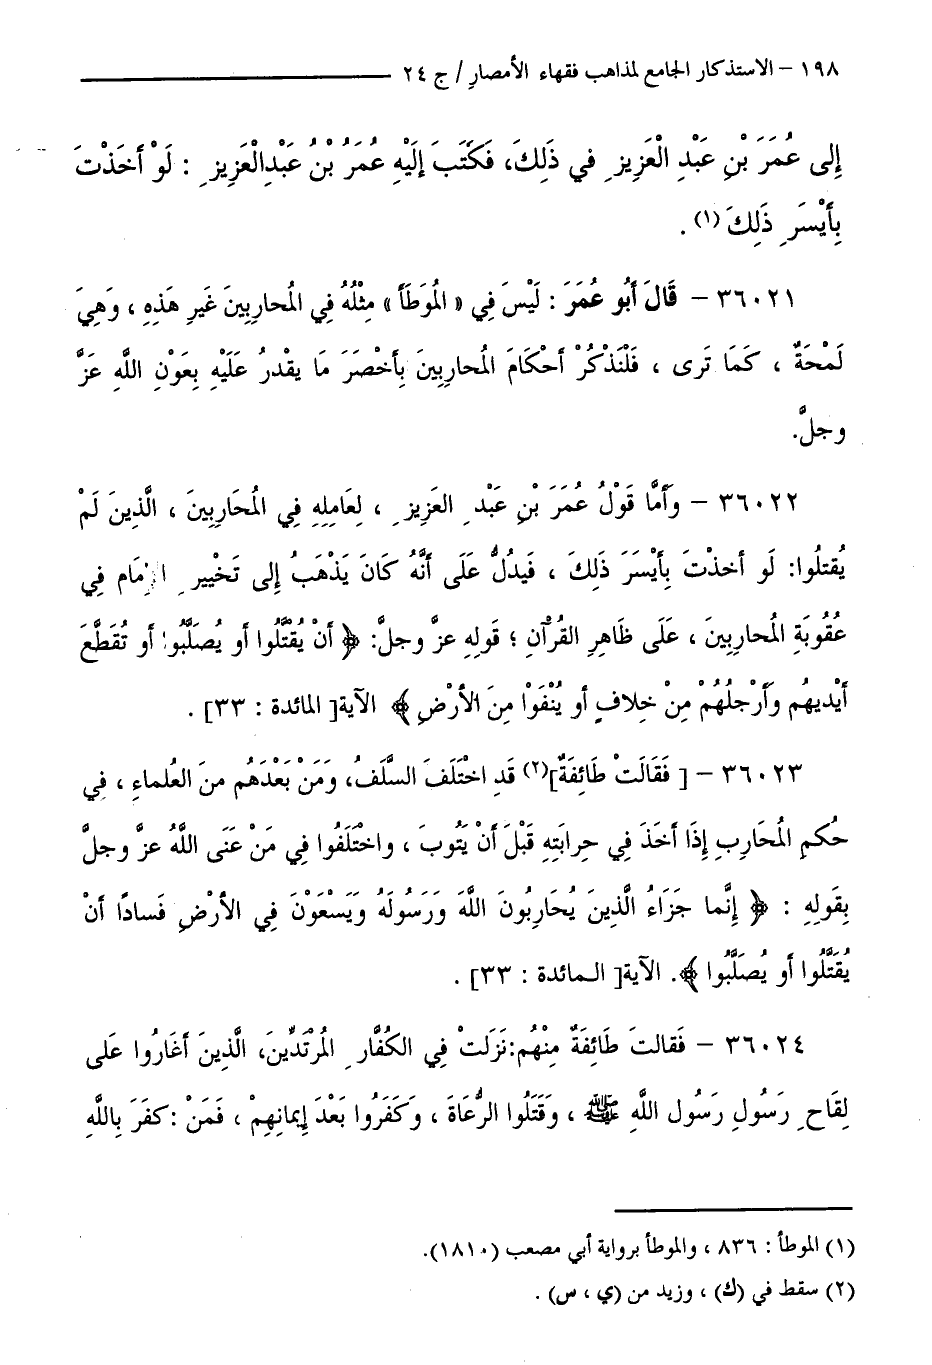 ١٩٨ – الاستذكار الجامع لمذاهب فقهاء الأمصارِ / ج ٢٤
إِلى عُمَرَ بْنِ عَبْدِ الْعَزِيزِ في ذَلِكَ، فَكَتَبَ إِلَيْهِ عُمَرُ بْنُ عَبْدِالْعَزِيزِ : لَوْ أخَذْتَ
بِأَيْسَرِ ذَلِكَ (١) .
٣٦٠٢١ – قَالَ أَبُو عُمَرَ : لَيْسَ فِي « الْمُوَطَّأ » مِثْلُهُ فِي الْمُحاربِينَ غَيرِ هَذِهِ ، وَهِيَ
لَمْحَةٌ ، كَمَا تَرى ، فَلْنَذْكُرْ أحْكَامَ الْمُحاربِينَ بِأَخْصَرَ مَا يقْدرُ عَلَيْهِ بِعَوْنِ اللَّهِ عَزَّ
وجلَّ.
٣٦٠٢٢ – وَأَمَّا قَوْلُ عُمَرَ بْنِ عَبْدِ العَزِيزِ ، لِعَامِلِهِ فِي الْمُحَارِبِينَ ، الَّذِينَ لَمْ
يُقتلُوا: لَو أخذْتَ بِأَيْسَرَ ذَلِكَ ، فَيدُلُّ عَلَى أَنَّهُ كَانَ يَذْهَبُ إِلى تَخْيير الإِمَام فِي
عقُوبَةِ الْمُحاربِينَ ، عَلَى ظَاهِرِ القُرآنِ ؛ قَولِهِ عزَّ وجلَّ: ﴿ أنْ يُقَتَّلُوا أو يُصَلَّبُوا أو تُقَطَّعَ
أيْديهُم وَأَرْجلُهُمْ مِنْ خِلافٍ أو يُنْفَوْا مِنَ الأَرْضِ ﴾ الآية[ المائدة : ٣٣] .
٣٦٠٢٣ – [ فَقَالَتْ طَائِفَةٌ](٢) قَدِ اخْتَلَفَ السَّلَفُ، وَمَنْ بَعْدَهُم منَ العُلماءِ ، فِي
حُكمِ الْمُحَاربِ إِذَا أخَذَ فِي حِرابَتِهِ قَبْلَ أنْ يَتُوبَ ، واخْتَلَفُوا فِي مَنْ عَنَى اللَّهُ عزَّ وجلَّ
بِقَولِهِ : ﴿ إِنَّما جَزَاءُ الَّذِينَ يُحَاربُونَ اللَّهَ وَرَسُولَهُ وَيَسْعَوْنَ فِي الأرْضِ فَسادًا أنْ
يُقَتَّلُوا أو يُصَلَّبُوا ﴾. الآية[ المائدة : ٣٣] .
٣٦٠٢٤ – فَقالتَ طَائِفَةٌ مِنْهُم:نَزَلَتْ فِي الكُفَّارِ الْمُرْتَدِّينَ، الَّذِينَ أغَارُوا عَلَى
لِقَاحِ رَسُولِ رَسُول اللَّهِ ﷺ ، وَقَتَلُوا الرُّعَاةَ ، وَكَفَرُوا بَعْدَ إِيمَانِهِمْ ، فَمَنْ :كفَرَ بِاللَّهِ
(١) الموطأ : ٨٣٦ ، والموطأ برواية أبي مصعب (١٨١٠).
(٢) سقط في (ك) ، وزيد من (ي ، س) .